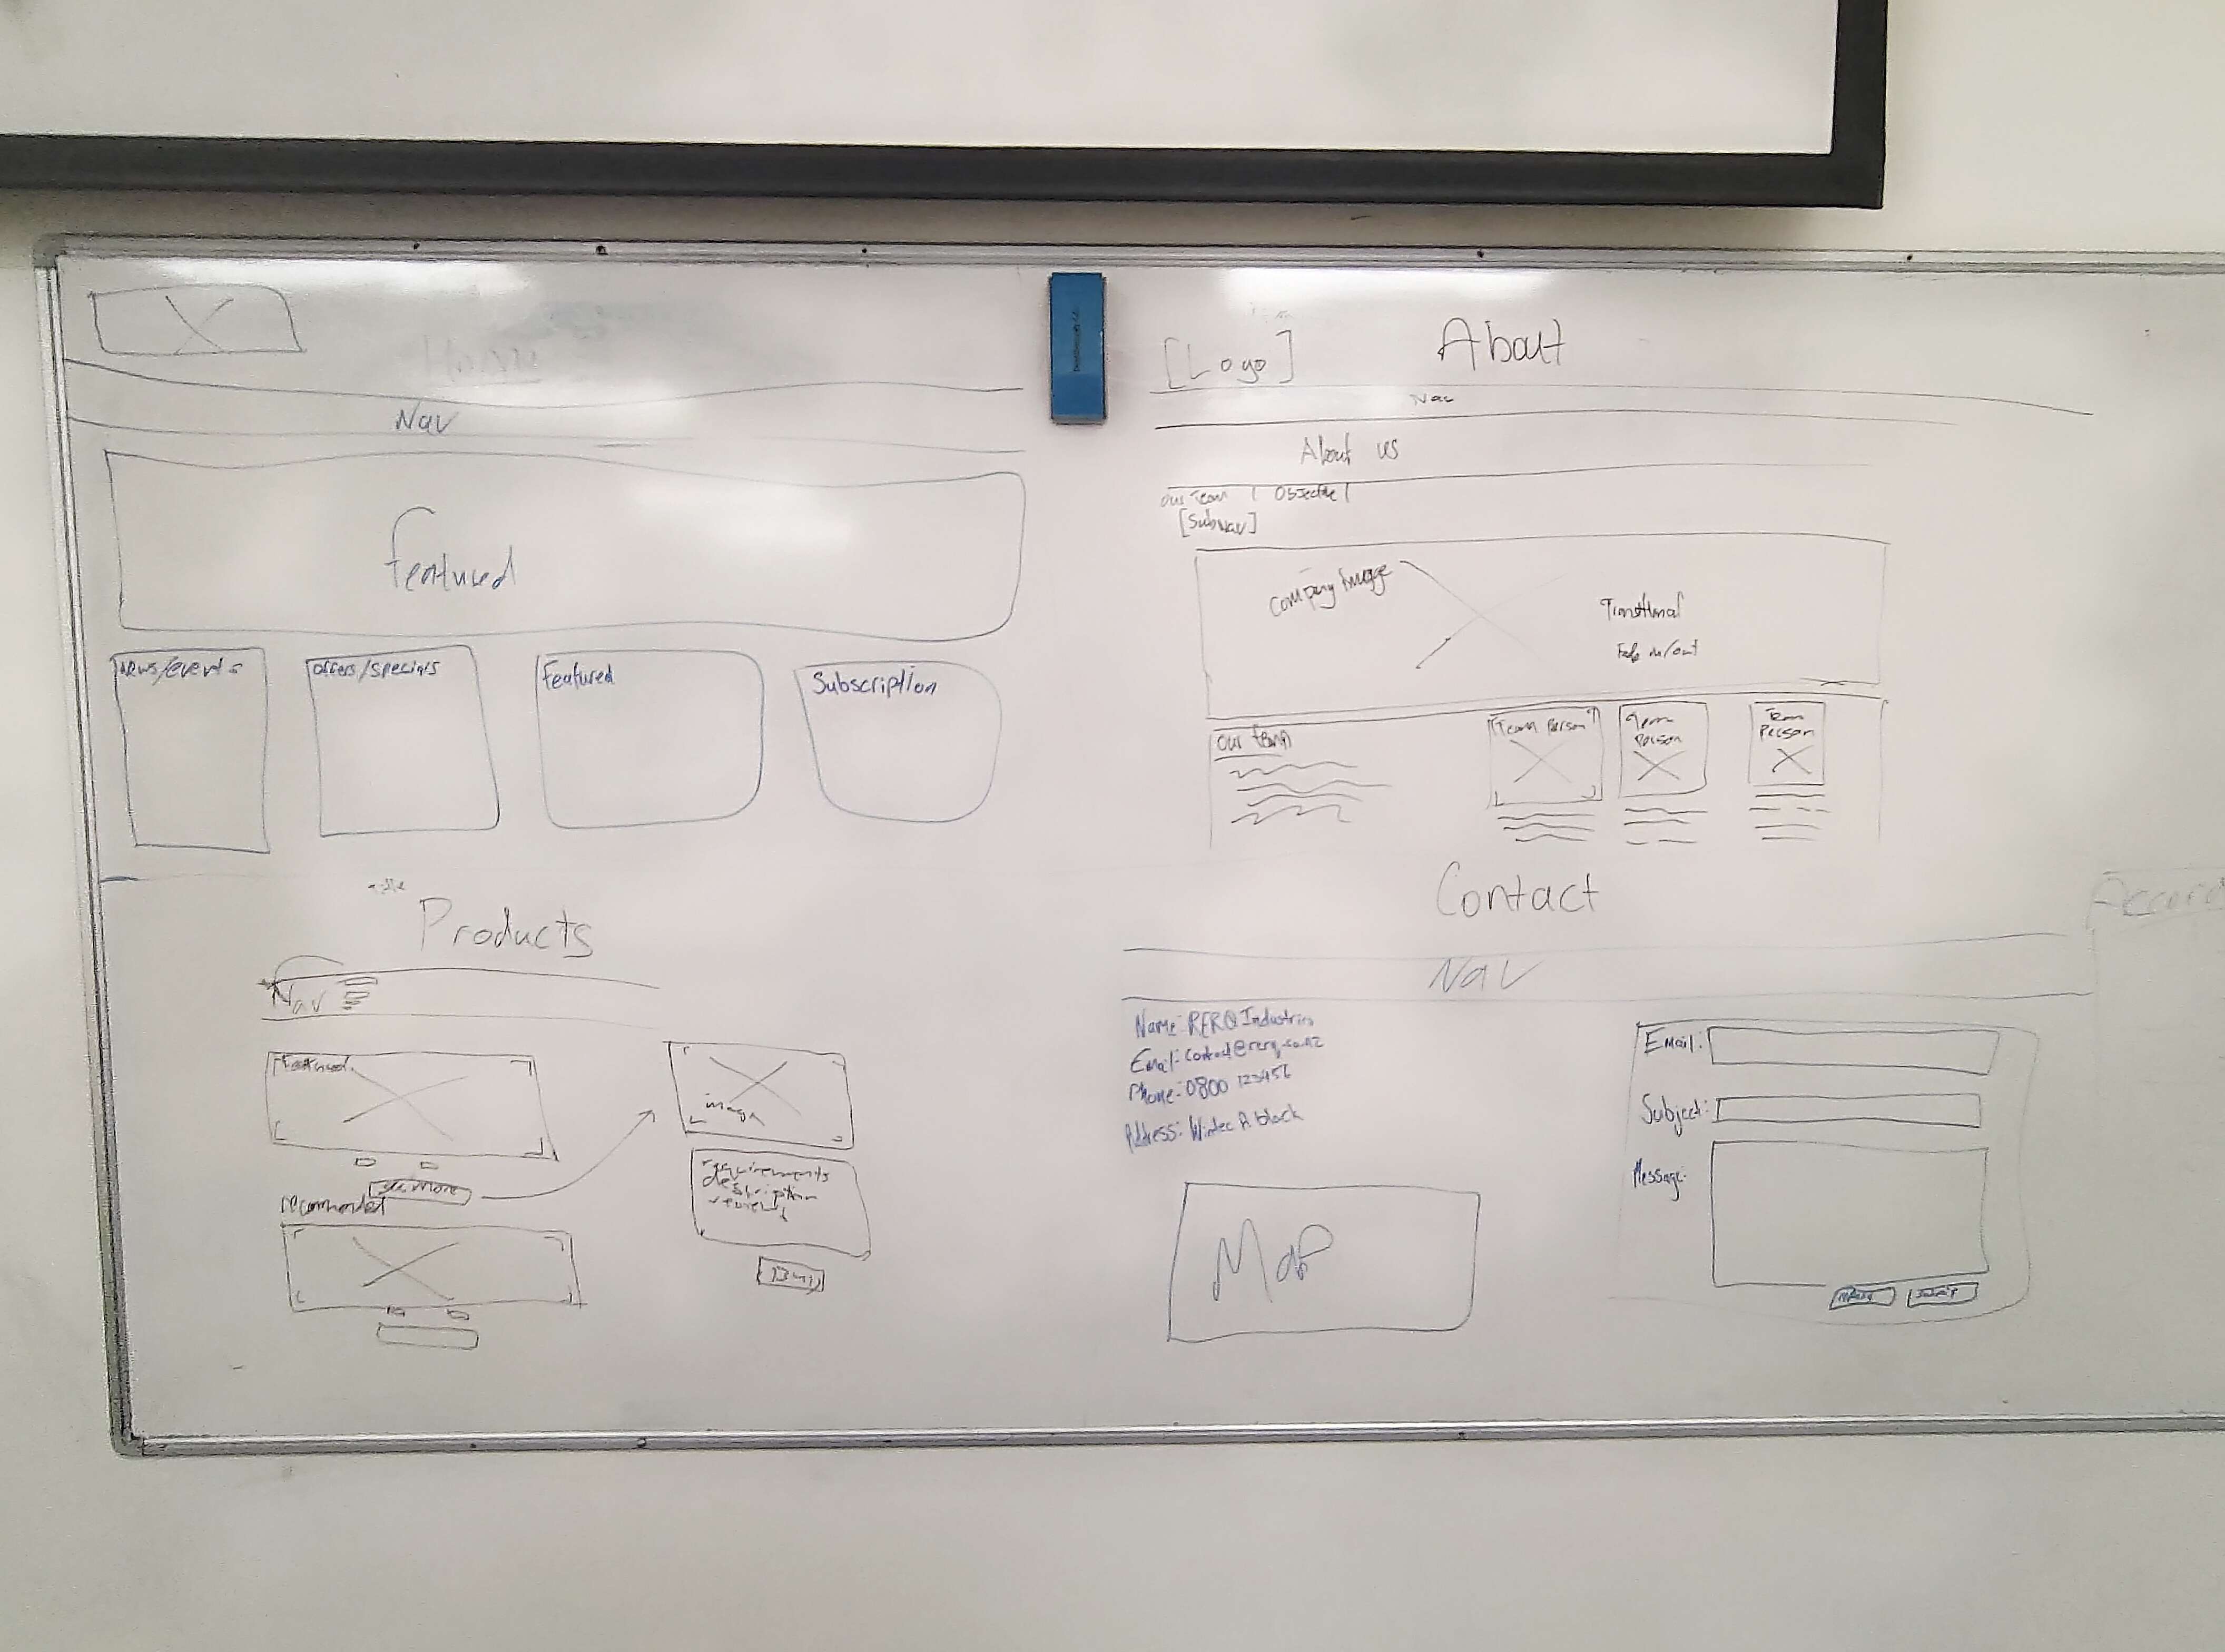 Home
Nav
Featured
News/events
offers/specials
Featured
Subscription
[Logo]
About
Nav
About us
our Team | Objective |
[SubNav]
Company Image
Fade in/out
our team
Team Person
Team Person
Team Person
Products
Nav
Featured
see more
recommended
image
requirements
description
Buy
Contact
Nav
Name: RERQ Industries
Email: contact@rerq.co.nz
Phone: 0800 123456
Address: Wintec A block
Map
Email:
Subject:
Message:
submit